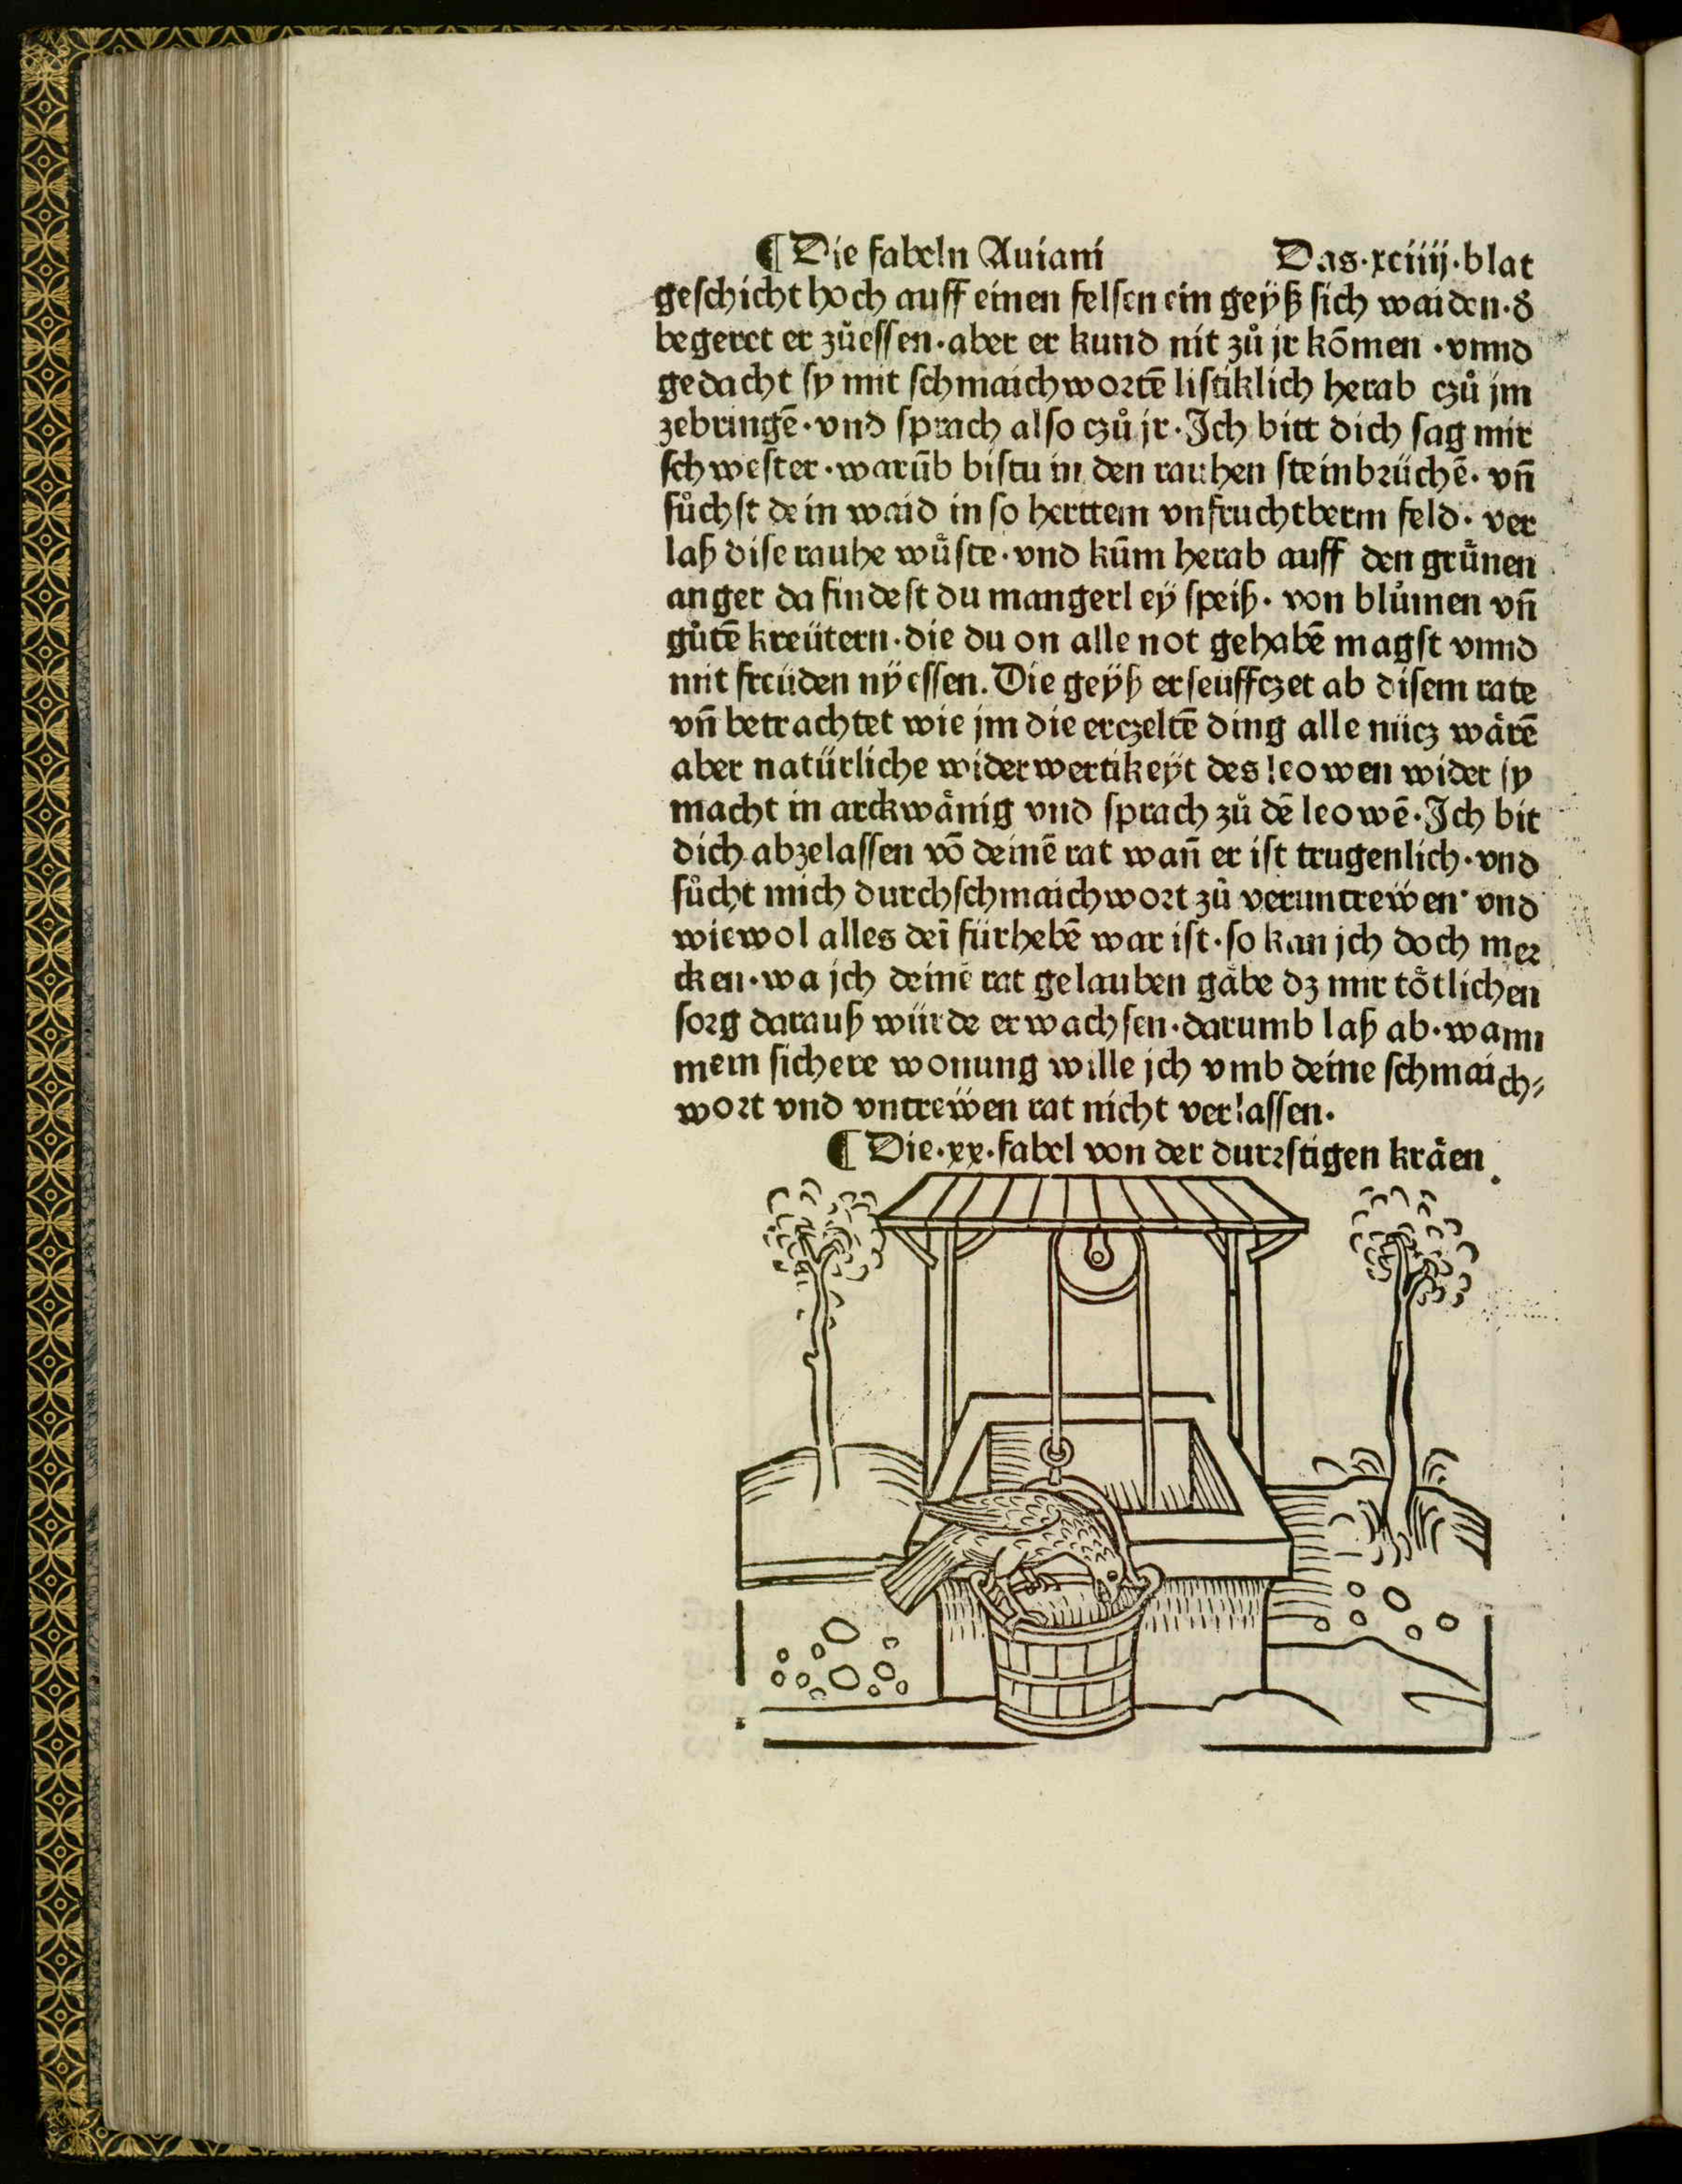 ¶ Die fabeln Auiani Das·xciiij·blat
geſchicht hoch auff einen felſen ein geÿß ſich waiden·δ
begeret er zůeſſen·aber er kund nit zů jr kōmen ·vnnd
gedacht ſy mit ſchmaichwoꝛtē liſtiklich herab czů jm
zebringē·vnd ſprach alſo czů jr·Ich bitt dich ſag mir
ſchweſter·warūb biſtu in den rauhen ſteinbꝛüchē· vn̄
ſůchſt dein waid in ſo herttem vnfruchtberm feld· ver
laß diſe rauhe wuͤſte·vnd kūm herab auff den gruͤnen
anger da findeſt du mangerleÿ ſpeiß· von blůmen vn̄
gůtē kreütern·die du on alle not gehabē magſt vnnd
mit freüden nÿeſſen. Die geÿß erſeüffczet ab diſem rate
vn̄ betrachtet wie jm die erczeltē ding alle nücz waͤrē
aber natürliche widerwertikeÿt des leowen wider ſy
macht in arckwaͤnig vnd ſprach zů dē leowē·Ich bit
dich abzelaſſen vō deinē rat wan̄ er iſt trugenlich·vnd
ſůcht mich durchſchmaichwoꝛt zů veruntrewen· vnd
wiewol alles deī fürhebē war iſt·ſo kan jch doch meꝛ
cken·wa jch deinē rat gelauben gaͤbe dz mir toͤtlichen
ſoꝛg darauß würde erwachſen·darumb laß ab·wann
mein ſichere wonung wille jch vmb deine ſchmaich⸗
woꝛt vnd vntrewen rat nicht verlaſſen·
¶ Die·xx·fabel von der durꝛſtigen kraͤen·